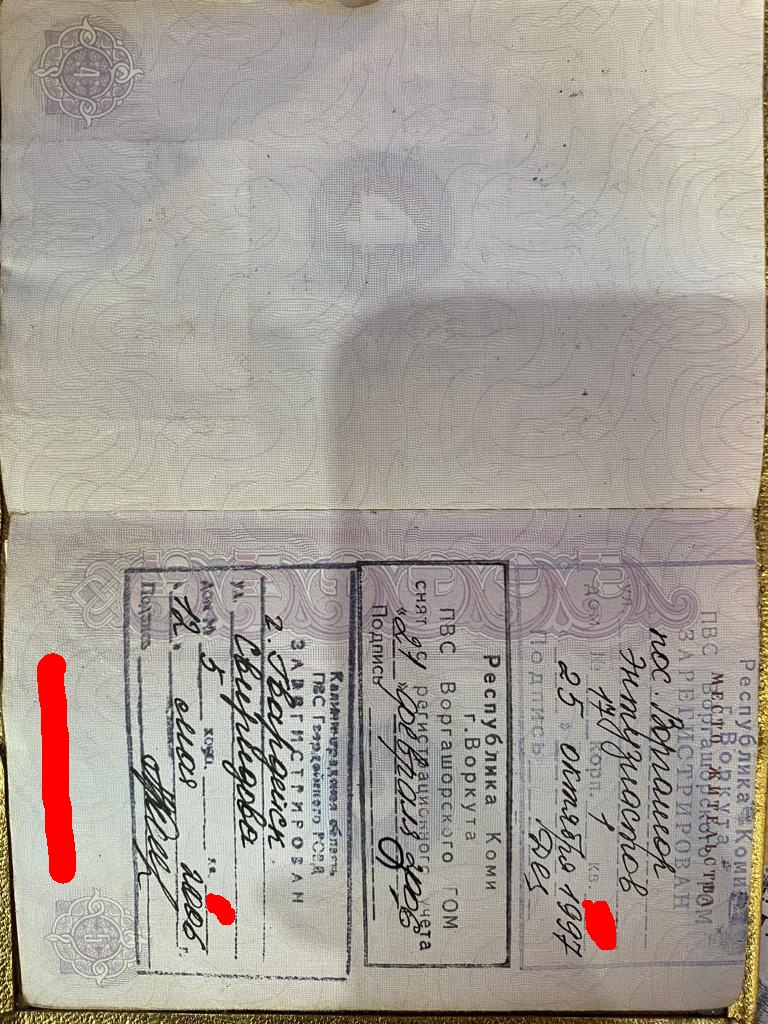 4
4
МЕСТО ЖИТЕЛЬСТВА
Республика Коми
г. Воркута
ПВС Воргашорского ГОМ
ЗАРЕГИСТРИРОВАН
пос. Воргашор
ул. Энтузиастов
дом № 17 корп. 1 кв.
"25" октября 1997
Подпись
Республика Коми
г. Воркута
ПВС Воргашорского ГОМ
снят с регистрационного учёта
февраля
Подпись
Калининградская область
ПВС Гвардейского РОВД
ЗАРЕГИСТРИРОВАН
г. Гвардейск
ул. Свиридова
дом № 5 корп. кв.
"12" мая 2006 г.
Подпись
4